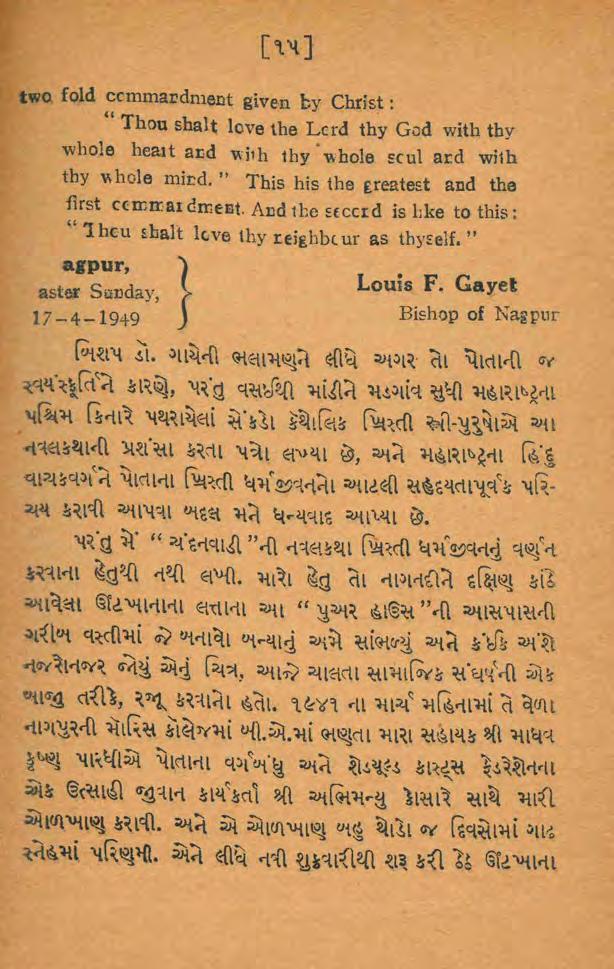 [૧૫]
two fold commardment given by Christ :
“ Thou shalt love the Lord thy God with thy
whole heart and with thy whole soul ard with
thy whole mird. ” This his the greatest and the
first commardment. And the second is like to this :
“ Thou shalt love thy reighbour as thyself. ”
agpur,
aster Sunday,
17-4-1949
Louis F. Gayet
Bishop of Nagpur
બિશપ ડૉ. ગાયેની ભલામણને લીધે અગર તો પોતાની જ
સ્વયંસ્ફૂર્તિને કારણે, પરંતુ વસઈથી માંડીને મડગાંવ સુધી મહારાષ્ટ્રના
પશ્ચિમ કિનારે પથરાયેલાં સેંકડો કૅથોલિક ખ્રિસ્તી સ્ત્રી-પુરુષોએ આ
નવલકથાની પ્રશંસા કરતા પત્રો લખ્યા છે, અને મહારાષ્ટ્રના હિંદુ
વાચકવર્ગને પોતાના ખ્રિસ્તી ધર્મજીવનનો આટલી સહૃદયતાપૂર્વક પરિ-
ચય કરાવી આપવા બદલ મને ધન્યવાદ આપ્યા છે.
પરંતુ મેં “ ચંદનવાડી ”ની નવલકથા ખ્રિસ્તી ધર્મજીવનનું વર્ણન
કરવાના હેતુથી નથી લખી. મારો હેતુ તો નાગનદીને દક્ષિણ કાંઠે
આવેલા ઊંટખાનાના લત્તાના આ “ પુઅર હાઉસ ”ની આસપાસની
ગરીબ વસ્તીમાં જે બનાવો બન્યાનું અમે સાંભળ્યું અને કંઈક અંશે
નજરોનજર જોયું એનું ચિત્ર, આજે ચાલતા સામાજિક સંઘર્ષની એક
બાજુ તરીકે, રજૂ કરવાનો હતો. ૧૯૪૧ ના માર્ચ મહિનામાં તે વેળા
નાગપુરની મૉરિસ કૉલેજમાં બી.એ.માં ભણતા મારા સહાયક શ્રી માધવ
કૃષ્ણ પારધીએ પોતાના વર્ગબંધુ અને શેડયૂલ્ડ કાસ્ટ્સ ફેડરેશનના
એક ઉત્સાહી જુવાન કાર્યકર્તા શ્રી અભિમન્યુ કોસારે સાથે મારી
ઓળખાણ કરાવી. અને એ ઓળખાણ બહુ થોડા જ દિવસોમાં ગાઢ
સ્નેહમાં પરિણમી. એને લીધે નવી શુક્રવારીથી શરૂ કરી ઠેઠ ઊંટખાના